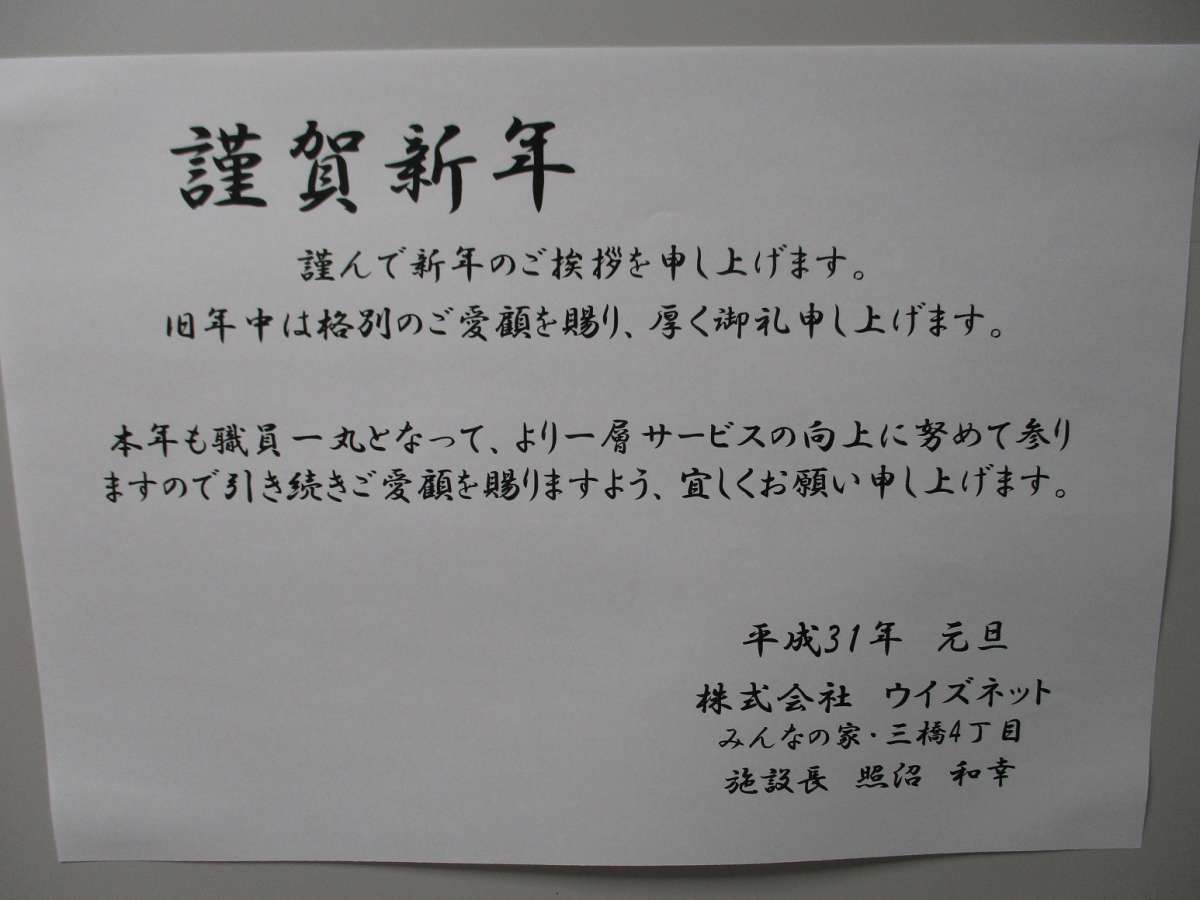 謹賀新年
謹んで新年のご挨拶を申し上げます。
旧年中は格別のご愛顧を賜り、厚く御礼申し上げます。
本年も職員一丸となって、より一層サービスの向上に努めて参り
ますので引き続きご愛顧を賜りますよう、宜しくお願い申し上げます。
平成31年 元旦
株式会社 ウイズネット
みんなの家・三橋4丁目
施設長 照沼 和幸